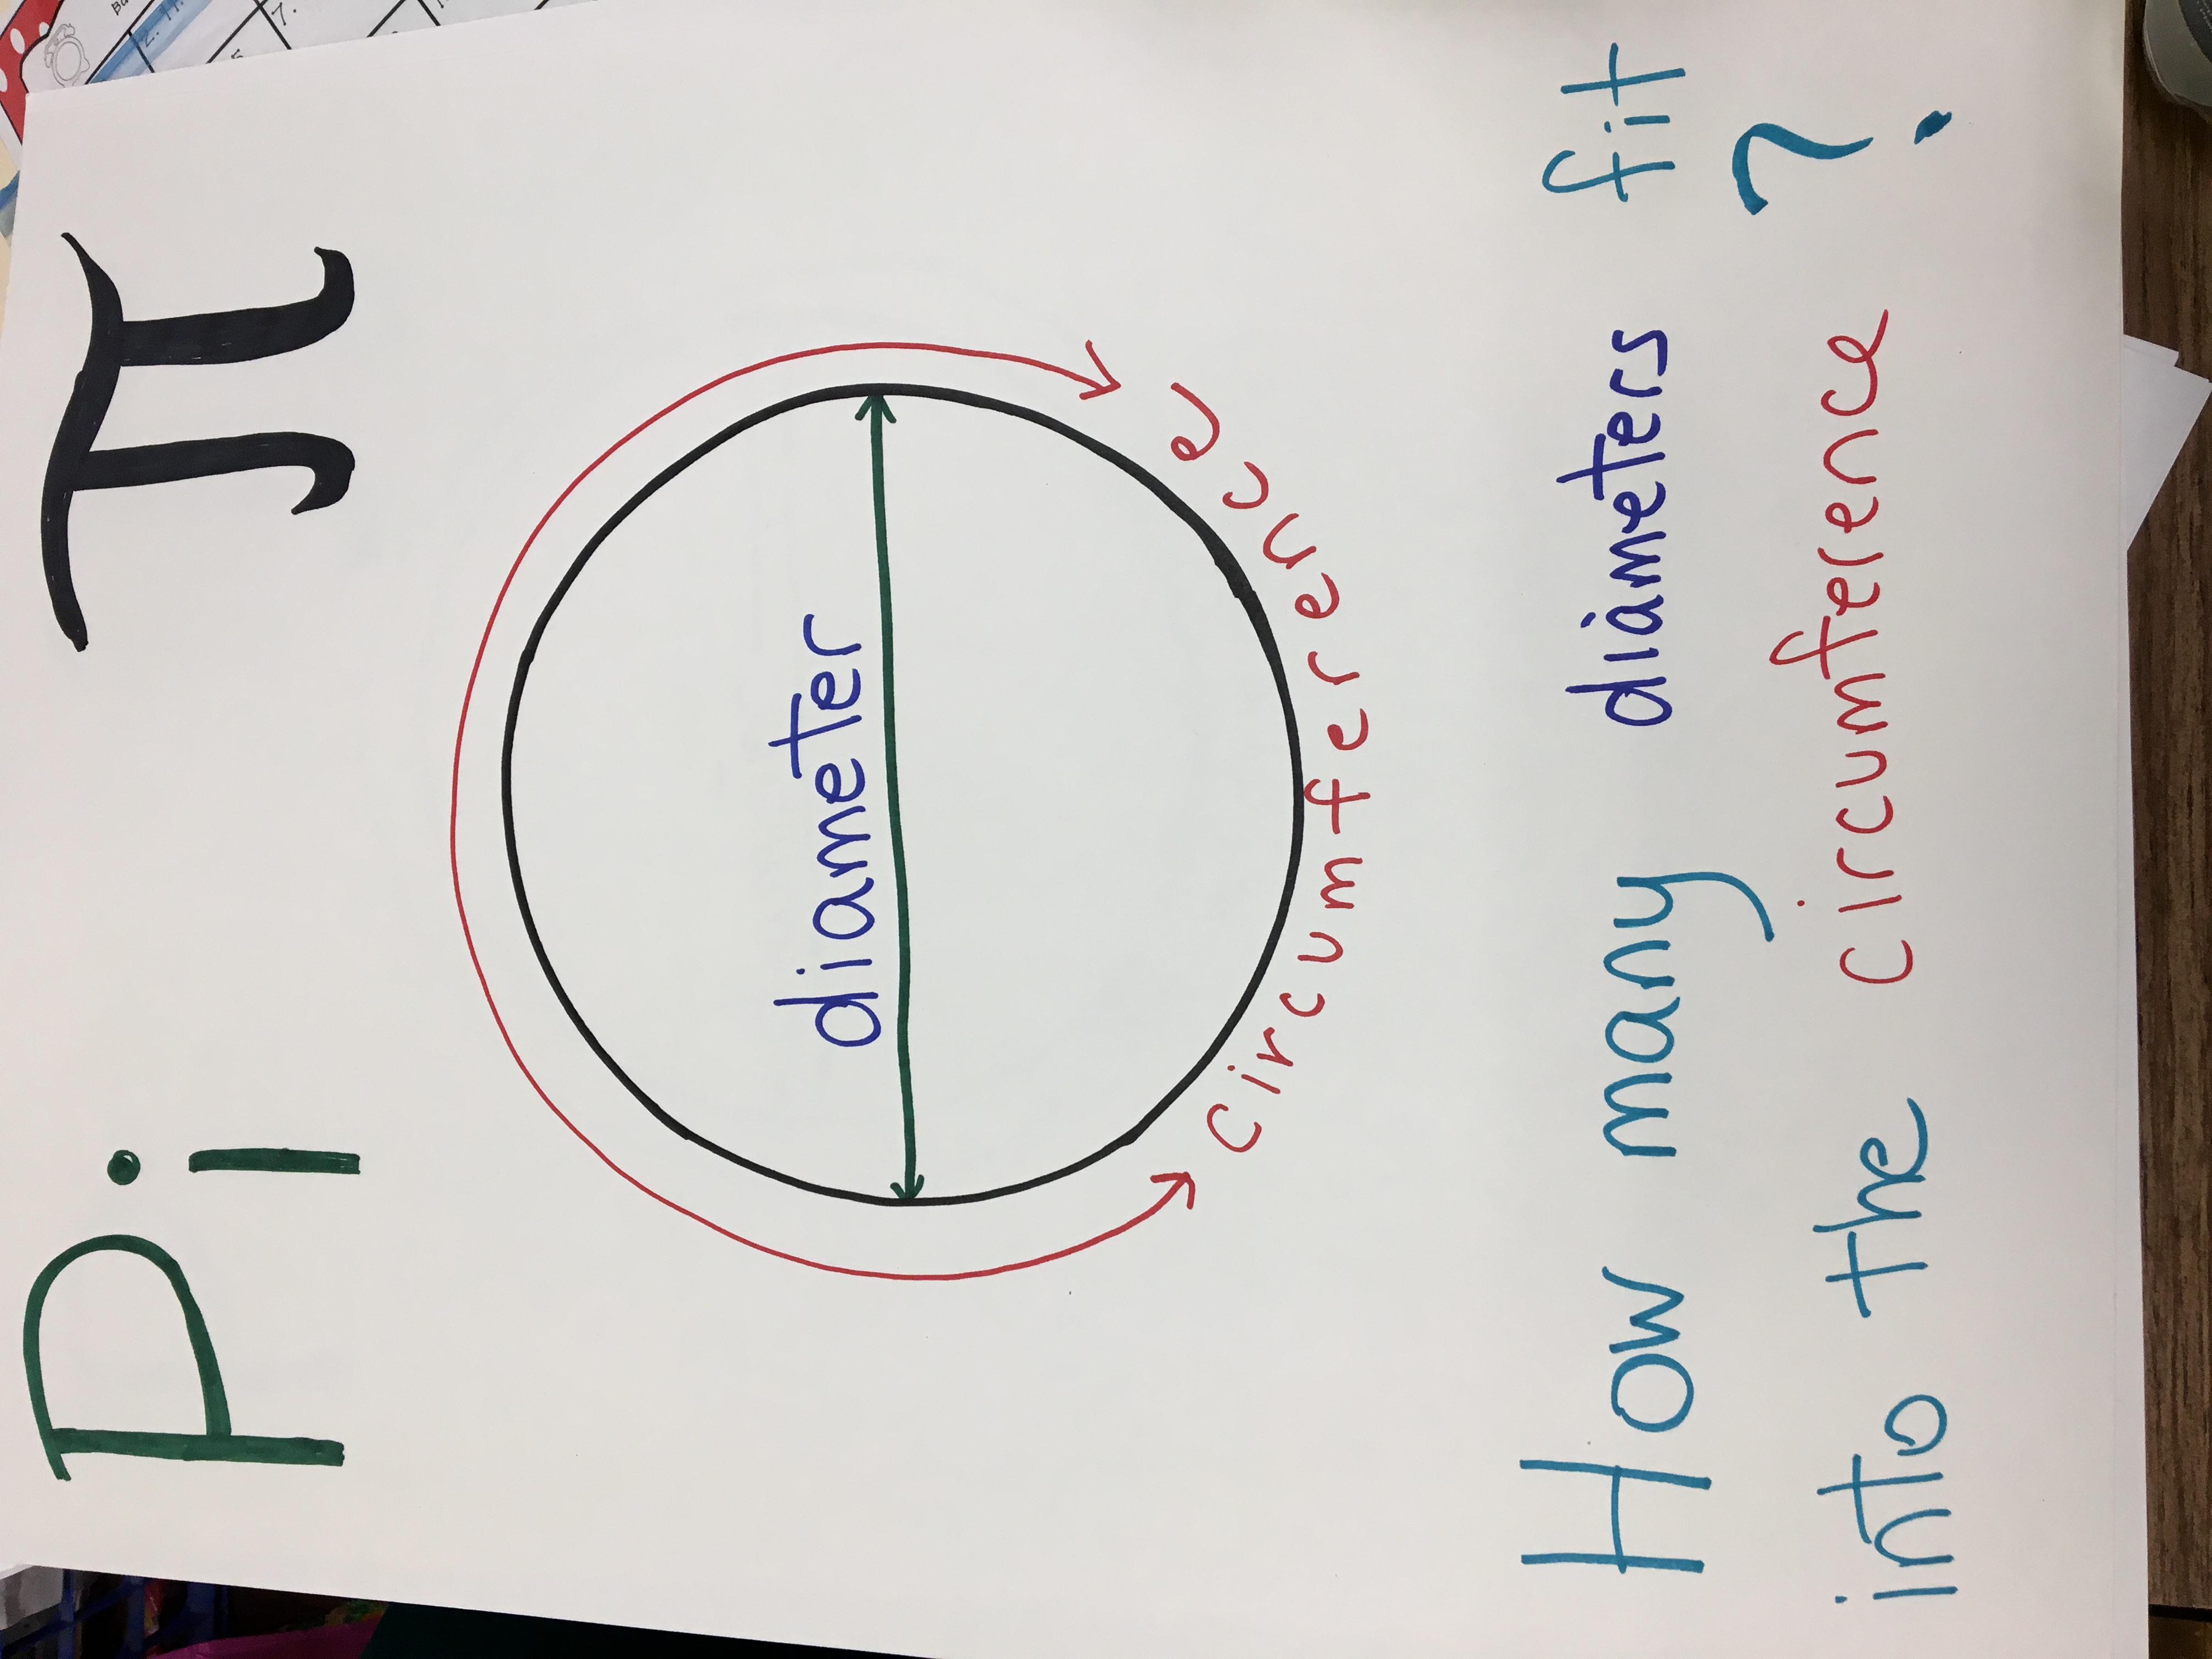 Pi π
diameter
circumference
How many diameters fit
into the circumference ?